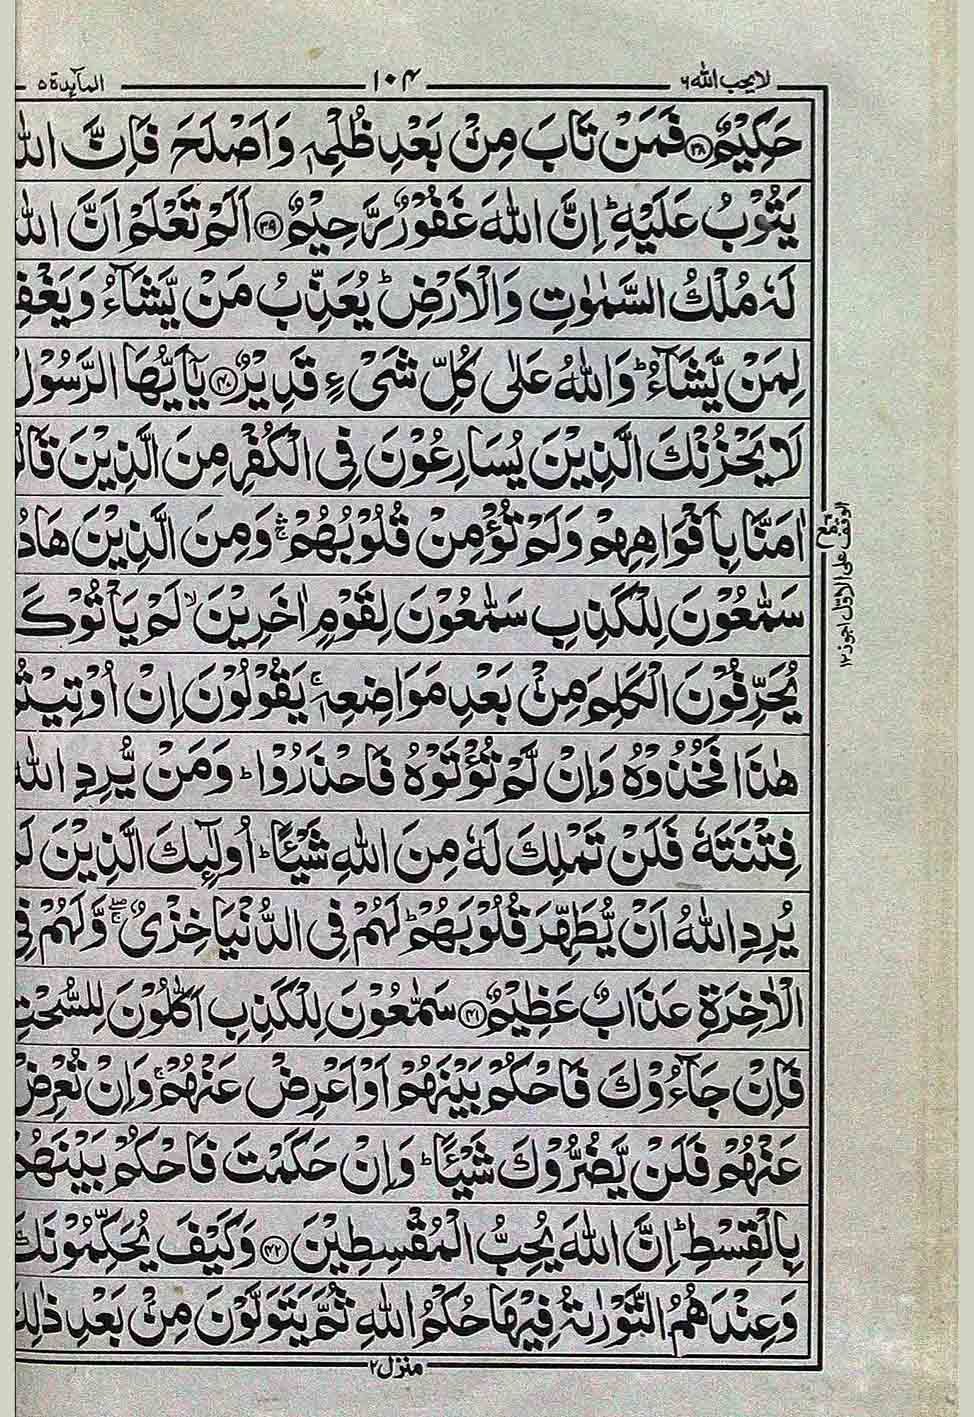 لا يحب الله ۶ ۱۰۴ المآيدة ۵
حَكِيْمٌ ﴿۳۸﴾ فَمَنْ تَابَ مِنْۢ بَعْدِ ظُلْمِهٖ وَاَصْلَحَ فَاِنَّ اللّٰهَ
يَتُوْبُ عَلَيْهِ ؕ اِنَّ اللّٰهَ غَفُوْرٌ رَّحِيْمٌ ﴿۳۹﴾ اَلَمْ تَعْلَمْ اَنَّ اللّٰهَ
لَهٗ مُلْكُ السَّمٰوٰتِ وَالْاَرْضِ ؕ يُعَذِّبُ مَنْ يَّشَآءُ وَيَغْفِ
لِمَنْ يَّشَآءُ ؕ وَاللّٰهُ عَلٰى كُلِّ شَىْءٍ قَدِيْرٌ ﴿۴۰﴾ يٰۤاَيُّهَا الرَّسُوْلُ
لَا يَحْزُنْكَ الَّذِيْنَ يُسَارِعُوْنَ فِى الْكُفْرِ مِنَ الَّذِيْنَ قَالُ
اٰمَنَّا بِاَفْوَاهِهِمْ وَلَمْ تُؤْمِنْ قُلُوْبُهُمْ ۛۚ وَمِنَ الَّذِيْنَ هَادُ
سَمّٰعُوْنَ لِلْكَذِبِ سَمّٰعُوْنَ لِقَوْمٍ اٰخَرِيْنَ ۙ لَمْ يَاْتُوْكَ
يُحَرِّفُوْنَ الْكَلِمَ مِنْۢ بَعْدِ مَوَاضِعِهٖ ۚ يَقُوْلُوْنَ اِنْ اُوْتِيْتُمْ
هٰذَا فَخُذُوْهُ وَاِنْ لَّمْ تُؤْتَوْهُ فَاحْذَرُوْا ؕ وَمَنْ يُّرِدِ اللّٰهُ
فِتْنَتَهٗ فَلَنْ تَمْلِكَ لَهٗ مِنَ اللّٰهِ شَيْـًٔا ؕ اُولٰٓئِكَ الَّذِيْنَ لَمْ
يُرِدِ اللّٰهُ اَنْ يُّطَهِّرَ قُلُوْبَهُمْ ؕ لَهُمْ فِى الدُّنْيَا خِزْىٌ ۖۚ وَّلَهُمْ فِى
الْاٰخِرَةِ عَذَابٌ عَظِيْمٌ ﴿۴۱﴾ سَمّٰعُوْنَ لِلْكَذِبِ اَكّٰلُوْنَ لِلسُّحْتِ
فَاِنْ جَآءُوْكَ فَاحْكُمْ بَيْنَهُمْ اَوْ اَعْرِضْ عَنْهُمْ ۚ وَاِنْ تُعْرِضْ
عَنْهُمْ فَلَنْ يَّضُرُّوْكَ شَيْـًٔا ؕ وَاِنْ حَكَمْتَ فَاحْكُمْ بَيْنَهُمْ
بِالْقِسْطِ ؕ اِنَّ اللّٰهَ يُحِبُّ الْمُقْسِطِيْنَ ﴿۴۲﴾ وَكَيْفَ يُحَكِّمُوْنَكَ
وَعِنْدَهُمُ التَّوْرٰىةُ فِيْهَا حُكْمُ اللّٰهِ ثُمَّ يَتَوَلَّوْنَ مِنْۢ بَعْدِ ذٰلِكَ
منزل ۲
الوقف على الاول اجوز ۱۲